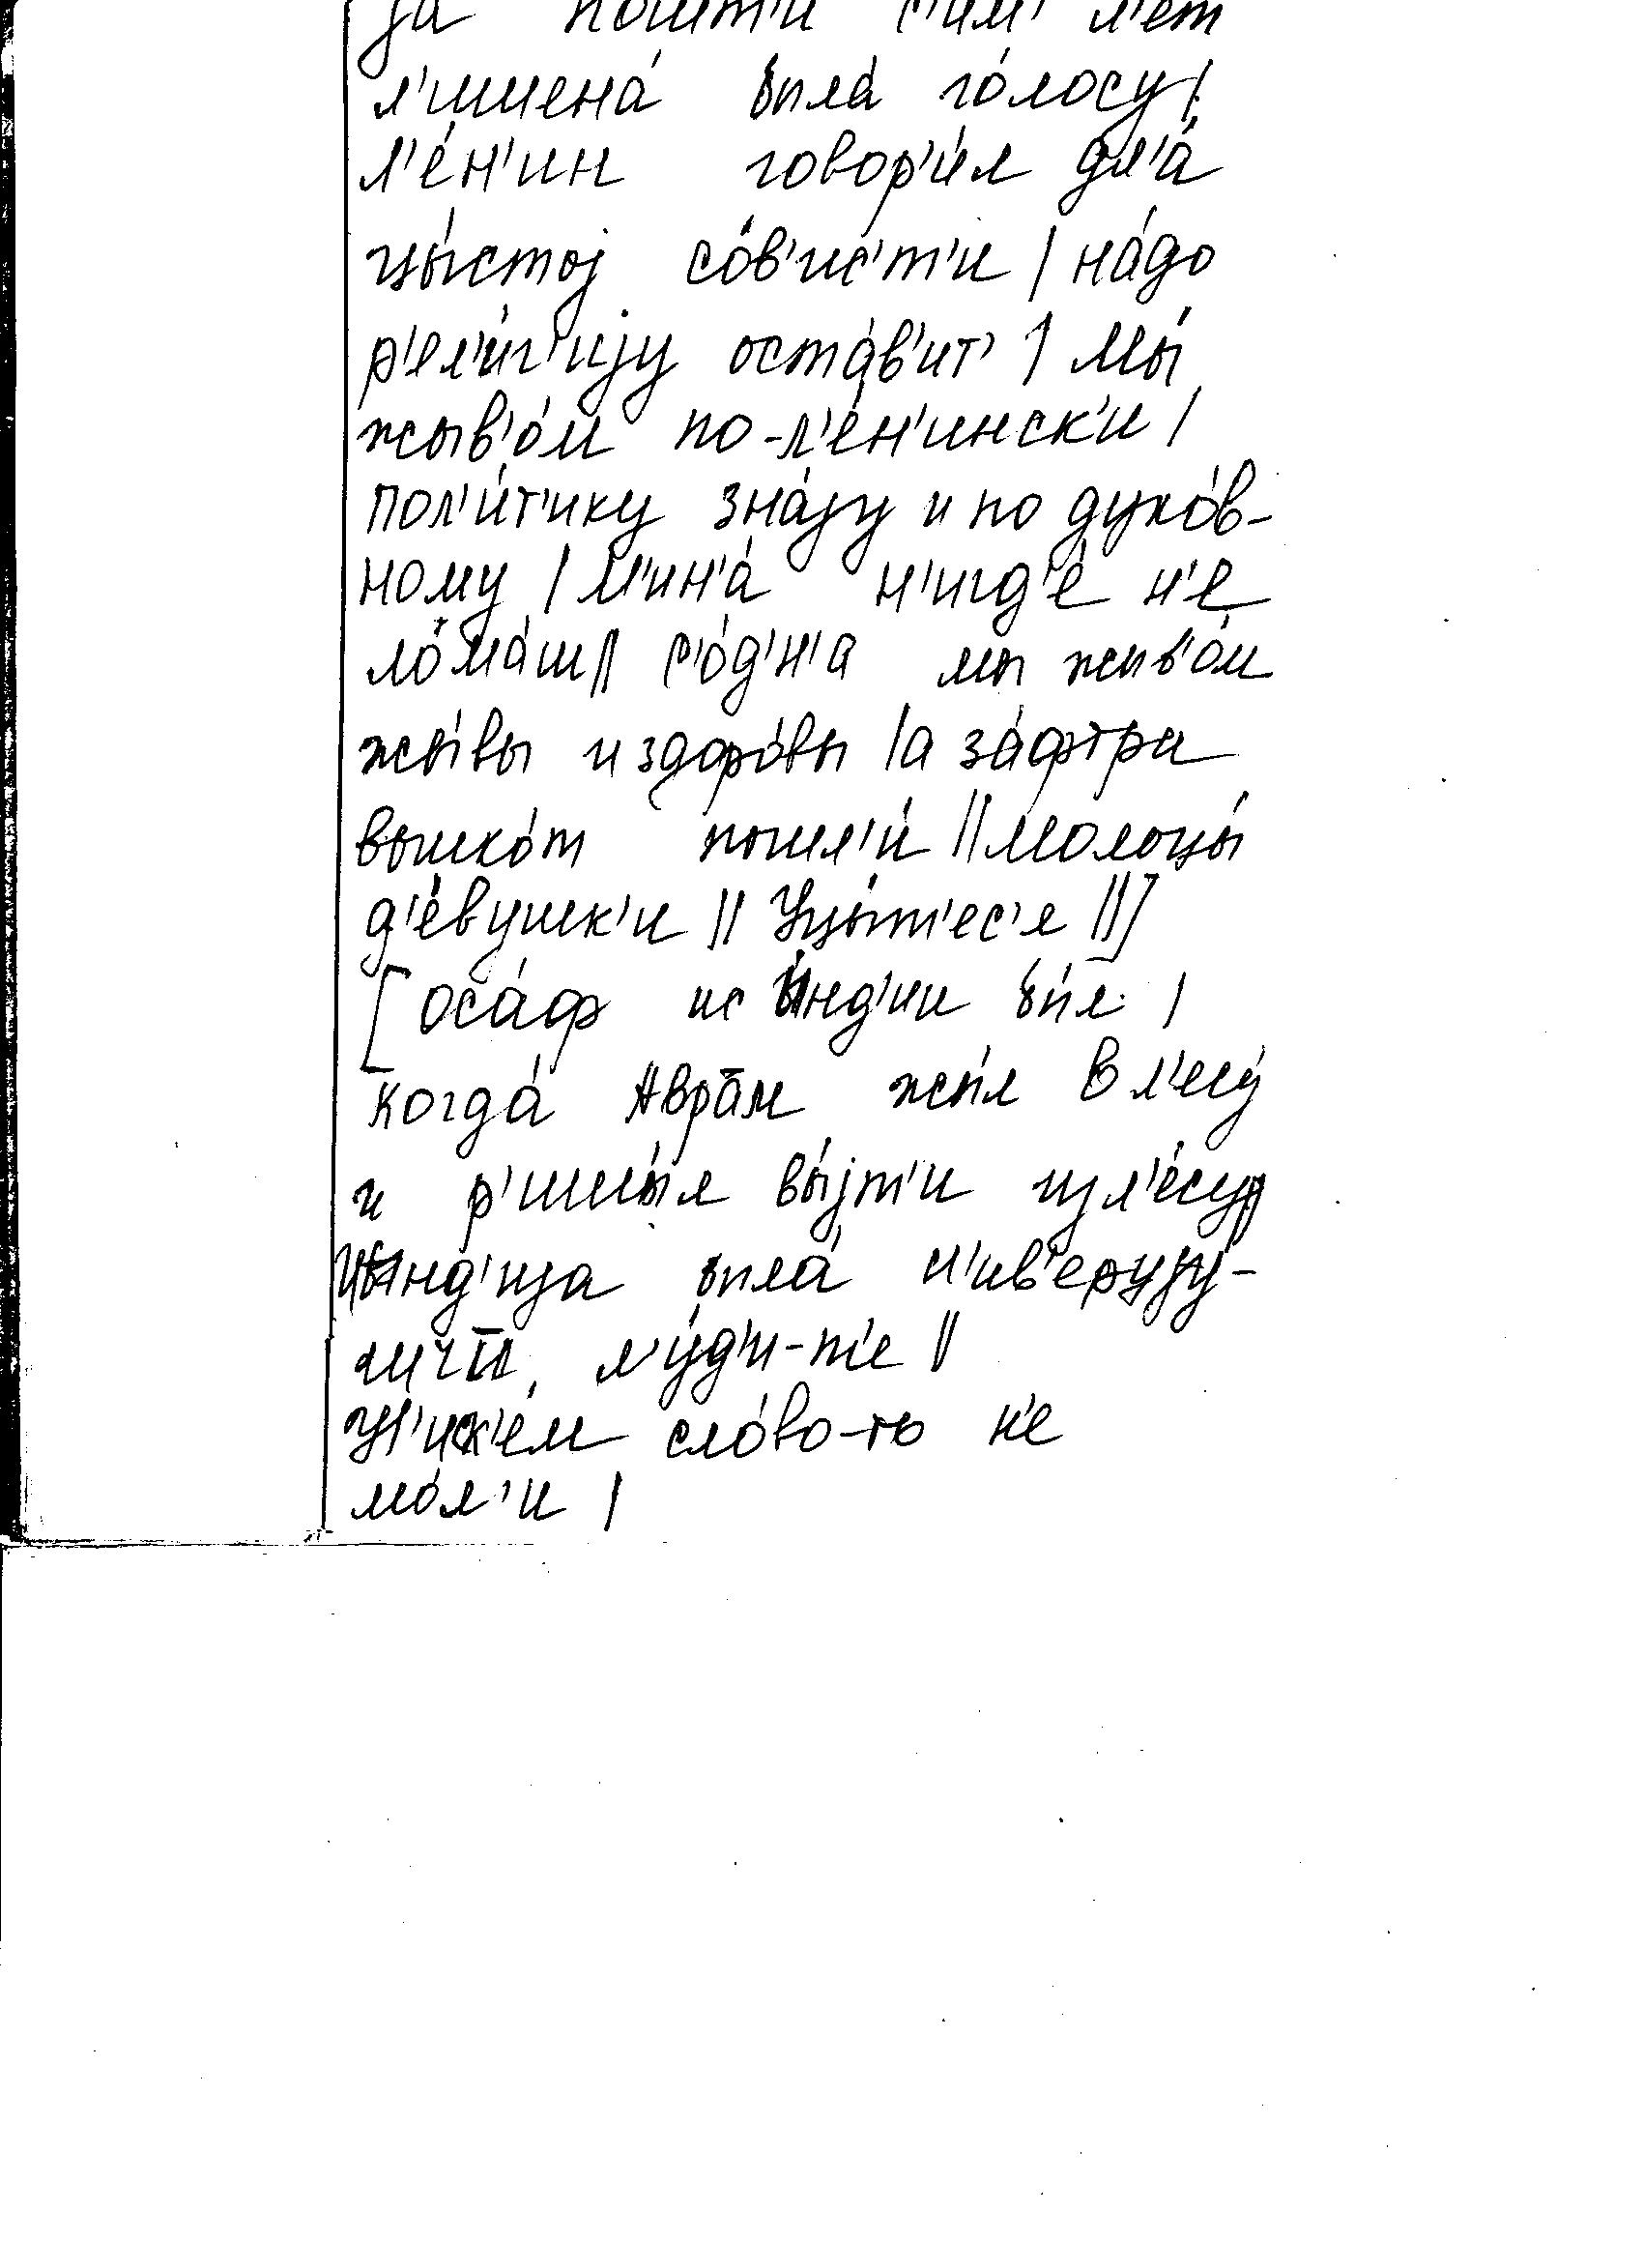 jа пошт'и с'им' л'ет
л'ишена́ была́ го́лосу |
л'е́н'ин говор'и́л дл'а́
цы́стоj со́в'ис'т'и | на́до
р'ел'и́г'иjу оста́в'ит' | мы́
жыв'о́м по-л'е́н'инск'и |
пол'и́т'ику зна́jу и по духо́в-
ному | м'ин'а́ н'игд'е́ н'е
лома́ш || с'о́д'н'а мы жыв'о́м
жы́вы и здоро́вы | а за́фтра
пошл'и́ || молоцы́
д'е́вушк'и || Уцы́т'ес'е ||]
[оса́ф ис Ы́нд'ии бы́л |
когда́ Авра́м жы́л в л'есу́
и р'ишы́л вы́jт'и из л'е́су ||
была́ н'ив'е́руjу-
л'у́д'и-т'е ||
сло́во-то н'е
мо́л'и |